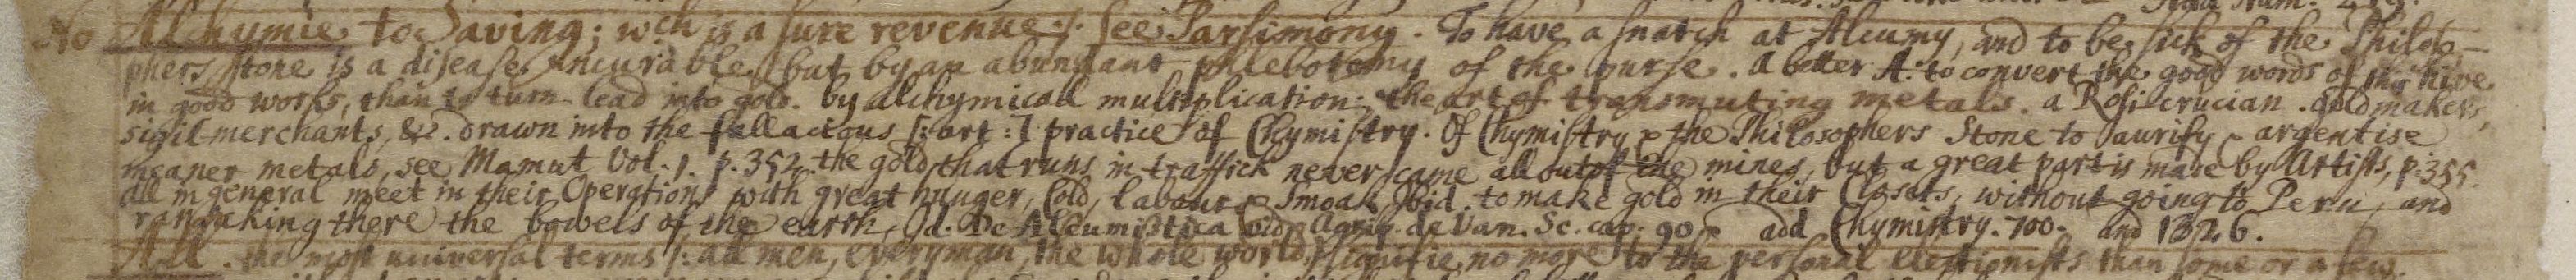 No Alchymie to Saving; wch is a sure revenue /. see Parsimony. To have a snatch at Alcumy, and to be sick of the Philoso-
phers stone is a disease uncurable, but by an abundant phlebotomy of the purse. A better A. to convert the good words of this hive
in good works, than to turn lead into gold. by alchymicall multiplication: the art of transmuting metals. a Rosi-crucian. gold makers,
sigil-merchants, &c. drawn into the fallacious [: art :] practice of Chymistry. Of Chymistry & the Philosophers Stone to aurify & argentise
meaner metals, see Mamut Vol. 1. p. 352. the gold that runs in traffick never came all out of the mines, but a great part is made by Artists, p. 355.
all in general meet in their Operations with great hunger, Cold, labour & Smoak Ibid. to make gold in their Closets, without going to Peru, and
ransaking there the bowels of the earth, Id. De Alcumistica vid. Agrip. de Van. Sc. cap. 90. add Chymistry. 700. and 1326.
All. the most universal terms /: all men, every man, the whole world, signifie no more to the personal electionists than some or a few